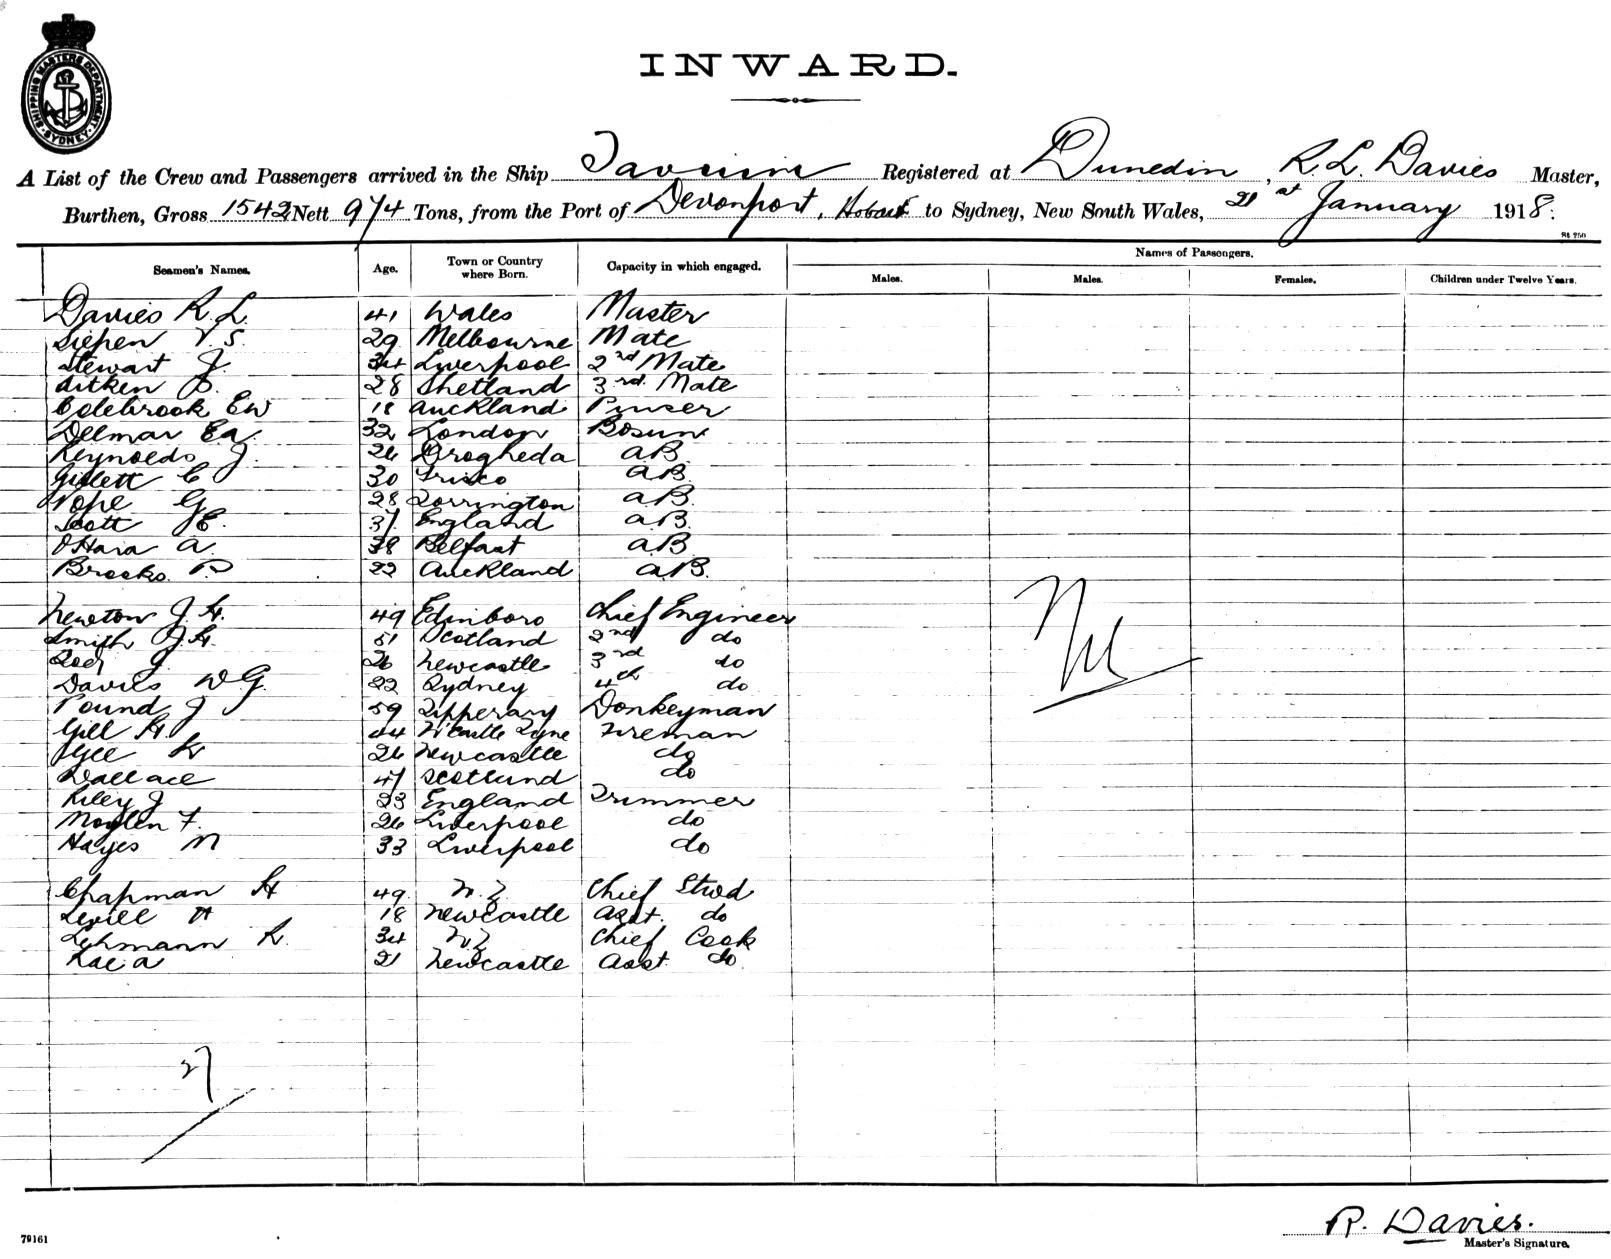 SHIPPING MASTERS DEPARTMENT
SYDNEY
INWARD.
A List of the Crew and Passengers arrived in the Ship Registered at Dunedin, R. L. Davies Master,
Burthen, Gross 1542 Nett 974 Tons, from the Port of Devonport, Hobart to Sydney, New South Wales, 21st January 1918.
St 250
Seamen's Names. Age. Town or Country where Born. Capacity in which engaged. Names of Passengers.
Males. Males. Females. Children under Twelve Years.
Davies R. L. 41 Wales Master
Siepen V. S. 29 Melbourne Mate
Stewart J. 34 Liverpool 2nd Mate
Aitken 28 Shetland 3rd Mate
Colebrook EW 18 Auckland Purser
Delmar E.A. 32 London Bosun
Reynolds J. 26 Drogheda AB
Gillett C 30 Frisco AB
Pope G 28 Torrington AB
Scott 37 England AB
O'Hara A. 38 Belfast AB
Brooks P 22 Auckland AB.
Newton J. H. 49 Edinboro Chief Engineer
Smith J H. 51 Scotland 2nd do
J. 26 Newcastle 3rd do
Davies W G. 22 Sydney 4th do
Pound J 59 Tipperary Donkeyman
Gill H. 44 N'Castle Tyne Fireman
H 26 Newcastle do
Wallace 47 Scotland do
Riley J 23 England Trimmer
F. 26 Liverpool do
Hayes M 33 Liverpool do
Chapman H 49 N.Z. Chief Stwd
18 Newcastle Asst. do
Lehmann R. 34 N.Z Chief Cook
Rae A 21 Newcastle Asst do.
Nil
27
R. Davies.
Master's Signature.
79161